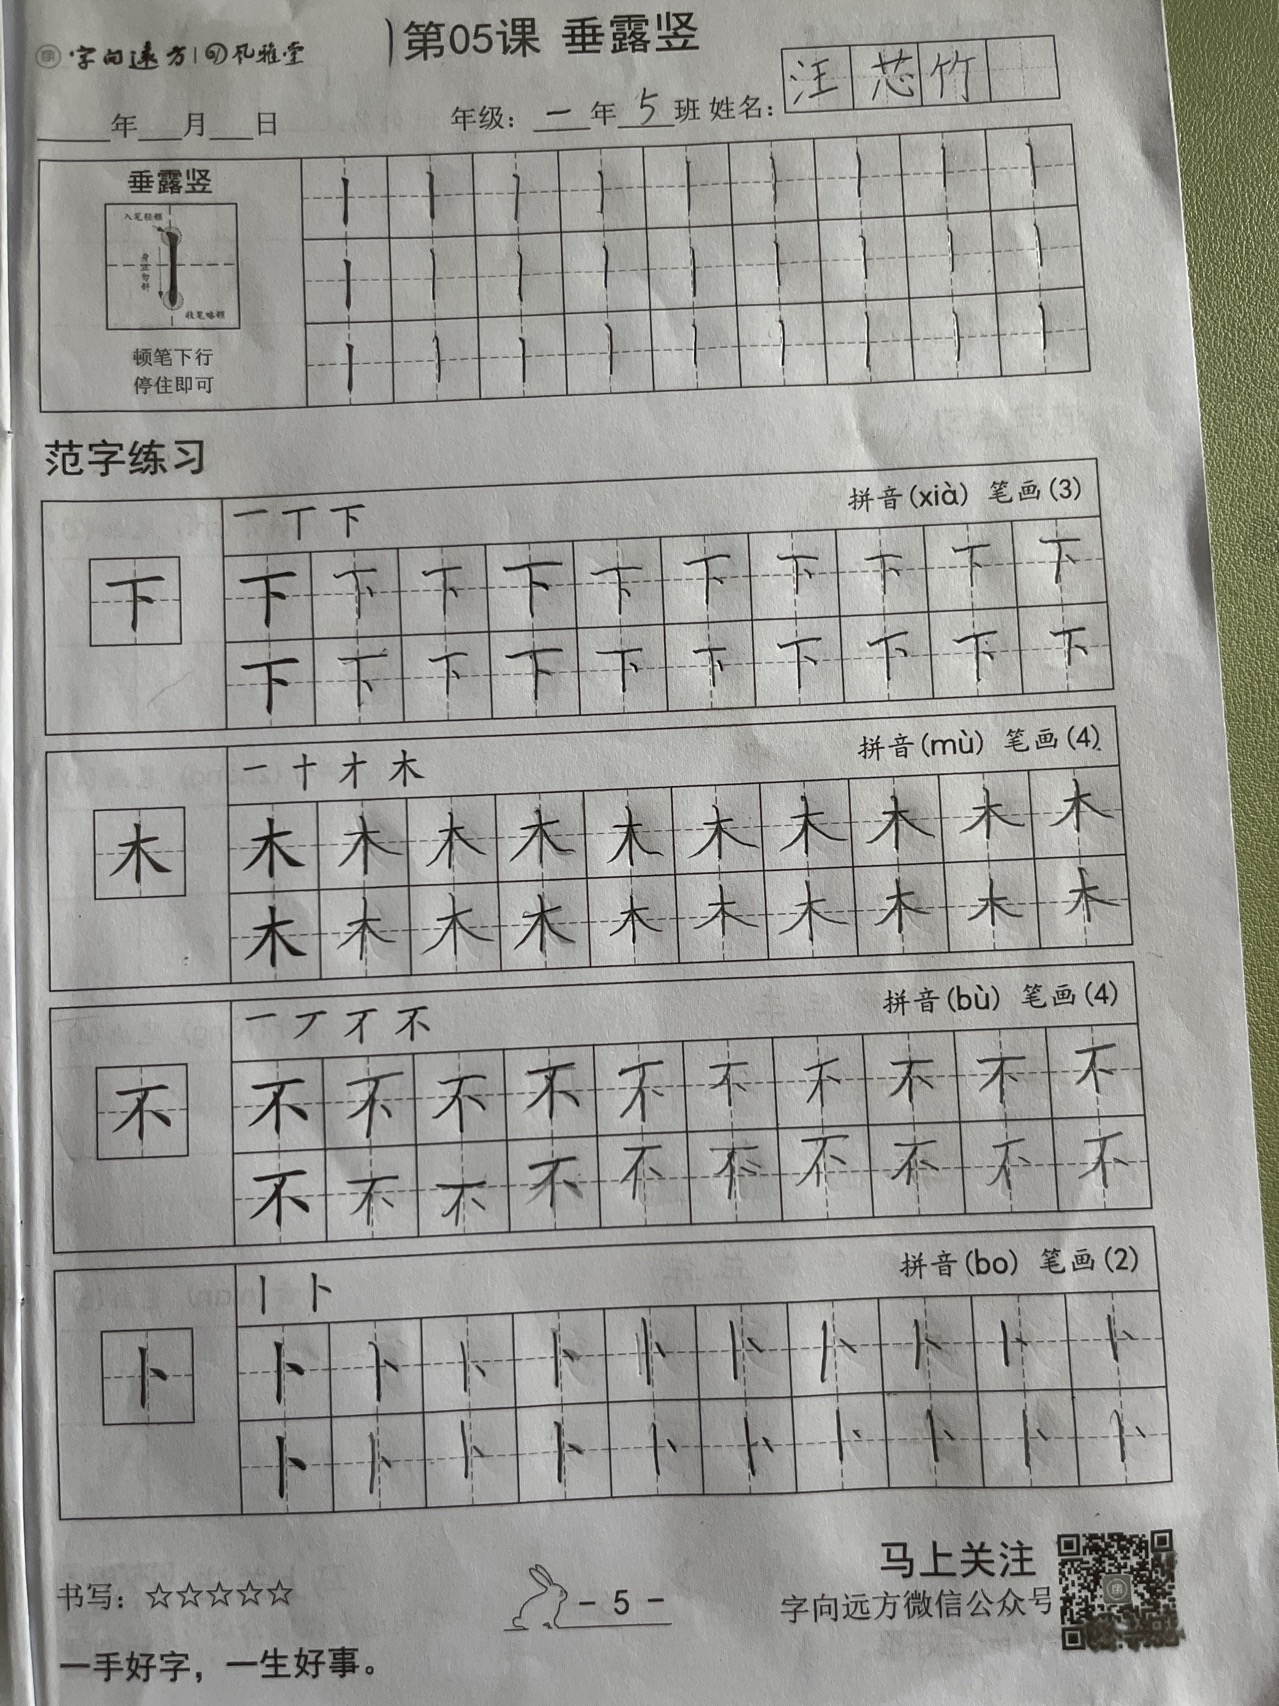 字向远方 风雅堂
第05课 垂露竖
年 月 日 年级：一年5班 姓名：汪芯竹
垂露竖
入笔轻顿
身正勿斜
收笔略顿
顿笔下行
停住即可
范字练习
一 丅 下 拼音(xià) 笔画(3)
下 下 下 下 下 下 下 下 下 下 下
下 下 下 下 下 下 下 下 下 下
一 十 才 木 拼音(mù) 笔画(4)
木 木 木 木 木 木 木 木 木 木 木
木 木 木 木 木 木 木 木 木 木
一 丆 不 拼音(bù) 笔画(4)
不 不 不 不 不 不 不 不 不 不 不
不 不 不 不 不 不 不 不 不 不
丨 卜 拼音(bo) 笔画(2)
卜 卜 卜 卜 卜 卜 卜 卜 卜 卜 卜
卜 卜 卜 卜 卜 卜 卜 卜 卜 卜
马上关注
书写：☆☆☆☆☆ - 5 - 字向远方微信公众号
一手好字，一生好事。